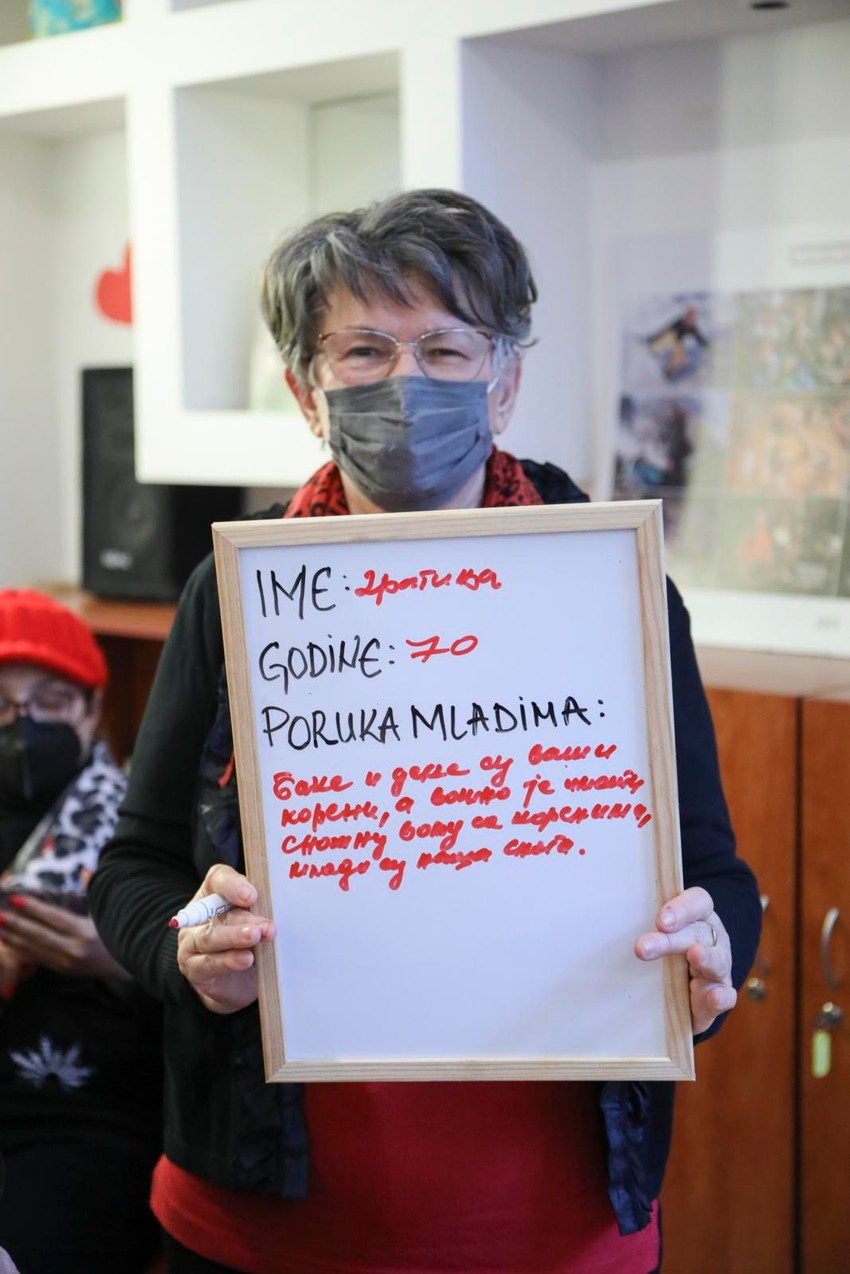 IME: Гратија
GODINE: 70
PORUKA MLADIMA:
Баке и деке су ваши
корени, а важно је имати
снажну везу са коренима,
млади су наша снага.